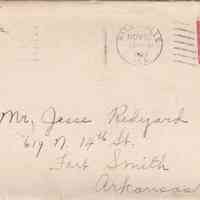 NOV
Mr. Jesse Redyard
619 N. 14th St.
Fort Smith
Arkansas